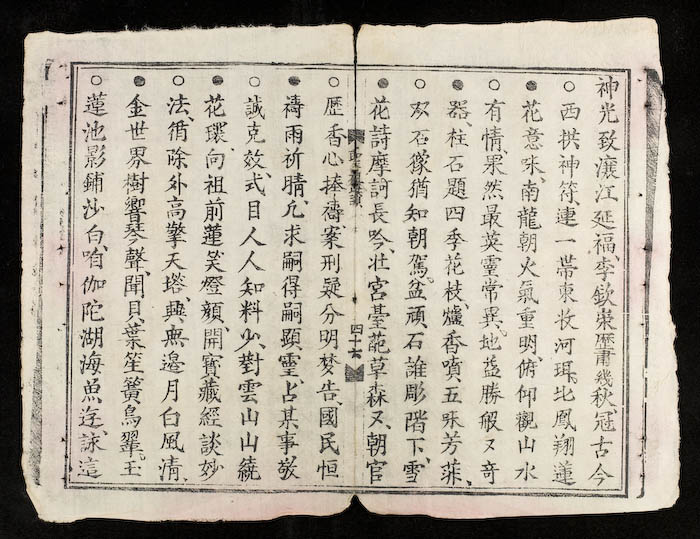 神光致瀼江延福、李欽崇歷肅幾秋、冠古今
○西拱神符、連一帶東收河珥、北鳳翔蓮
●花意味、南龍朝火氣重明、俯仰觀山水
○有情、果然最英靈常異、地蓋勝般又奇
●器、柱石題四季花枝、爐香噴五味芳菲、
○双石獴猶知朝駕、盆頑石誰彫階下、雪
●花詩摩訶長吟、壯宮臺葩草森又、朝官
四十六
○歷香心捧禱案刑疑分明梦告、國民恒
●禱雨祈晴、允求嗣得嗣顕靈、占某事敬
○誠克效、式目人人知料少、對雲山山繞
●花環、向祖前蓮笑燈顏、開寶藏經談妙
○法、循除外高擎天塔、興無邊月白風清、
●金世界樹響琴聲、聞貝葉笙簧鳥翠、玉
○蓮池影鋪沙白、咱伽陀湖海魚迯、詠這